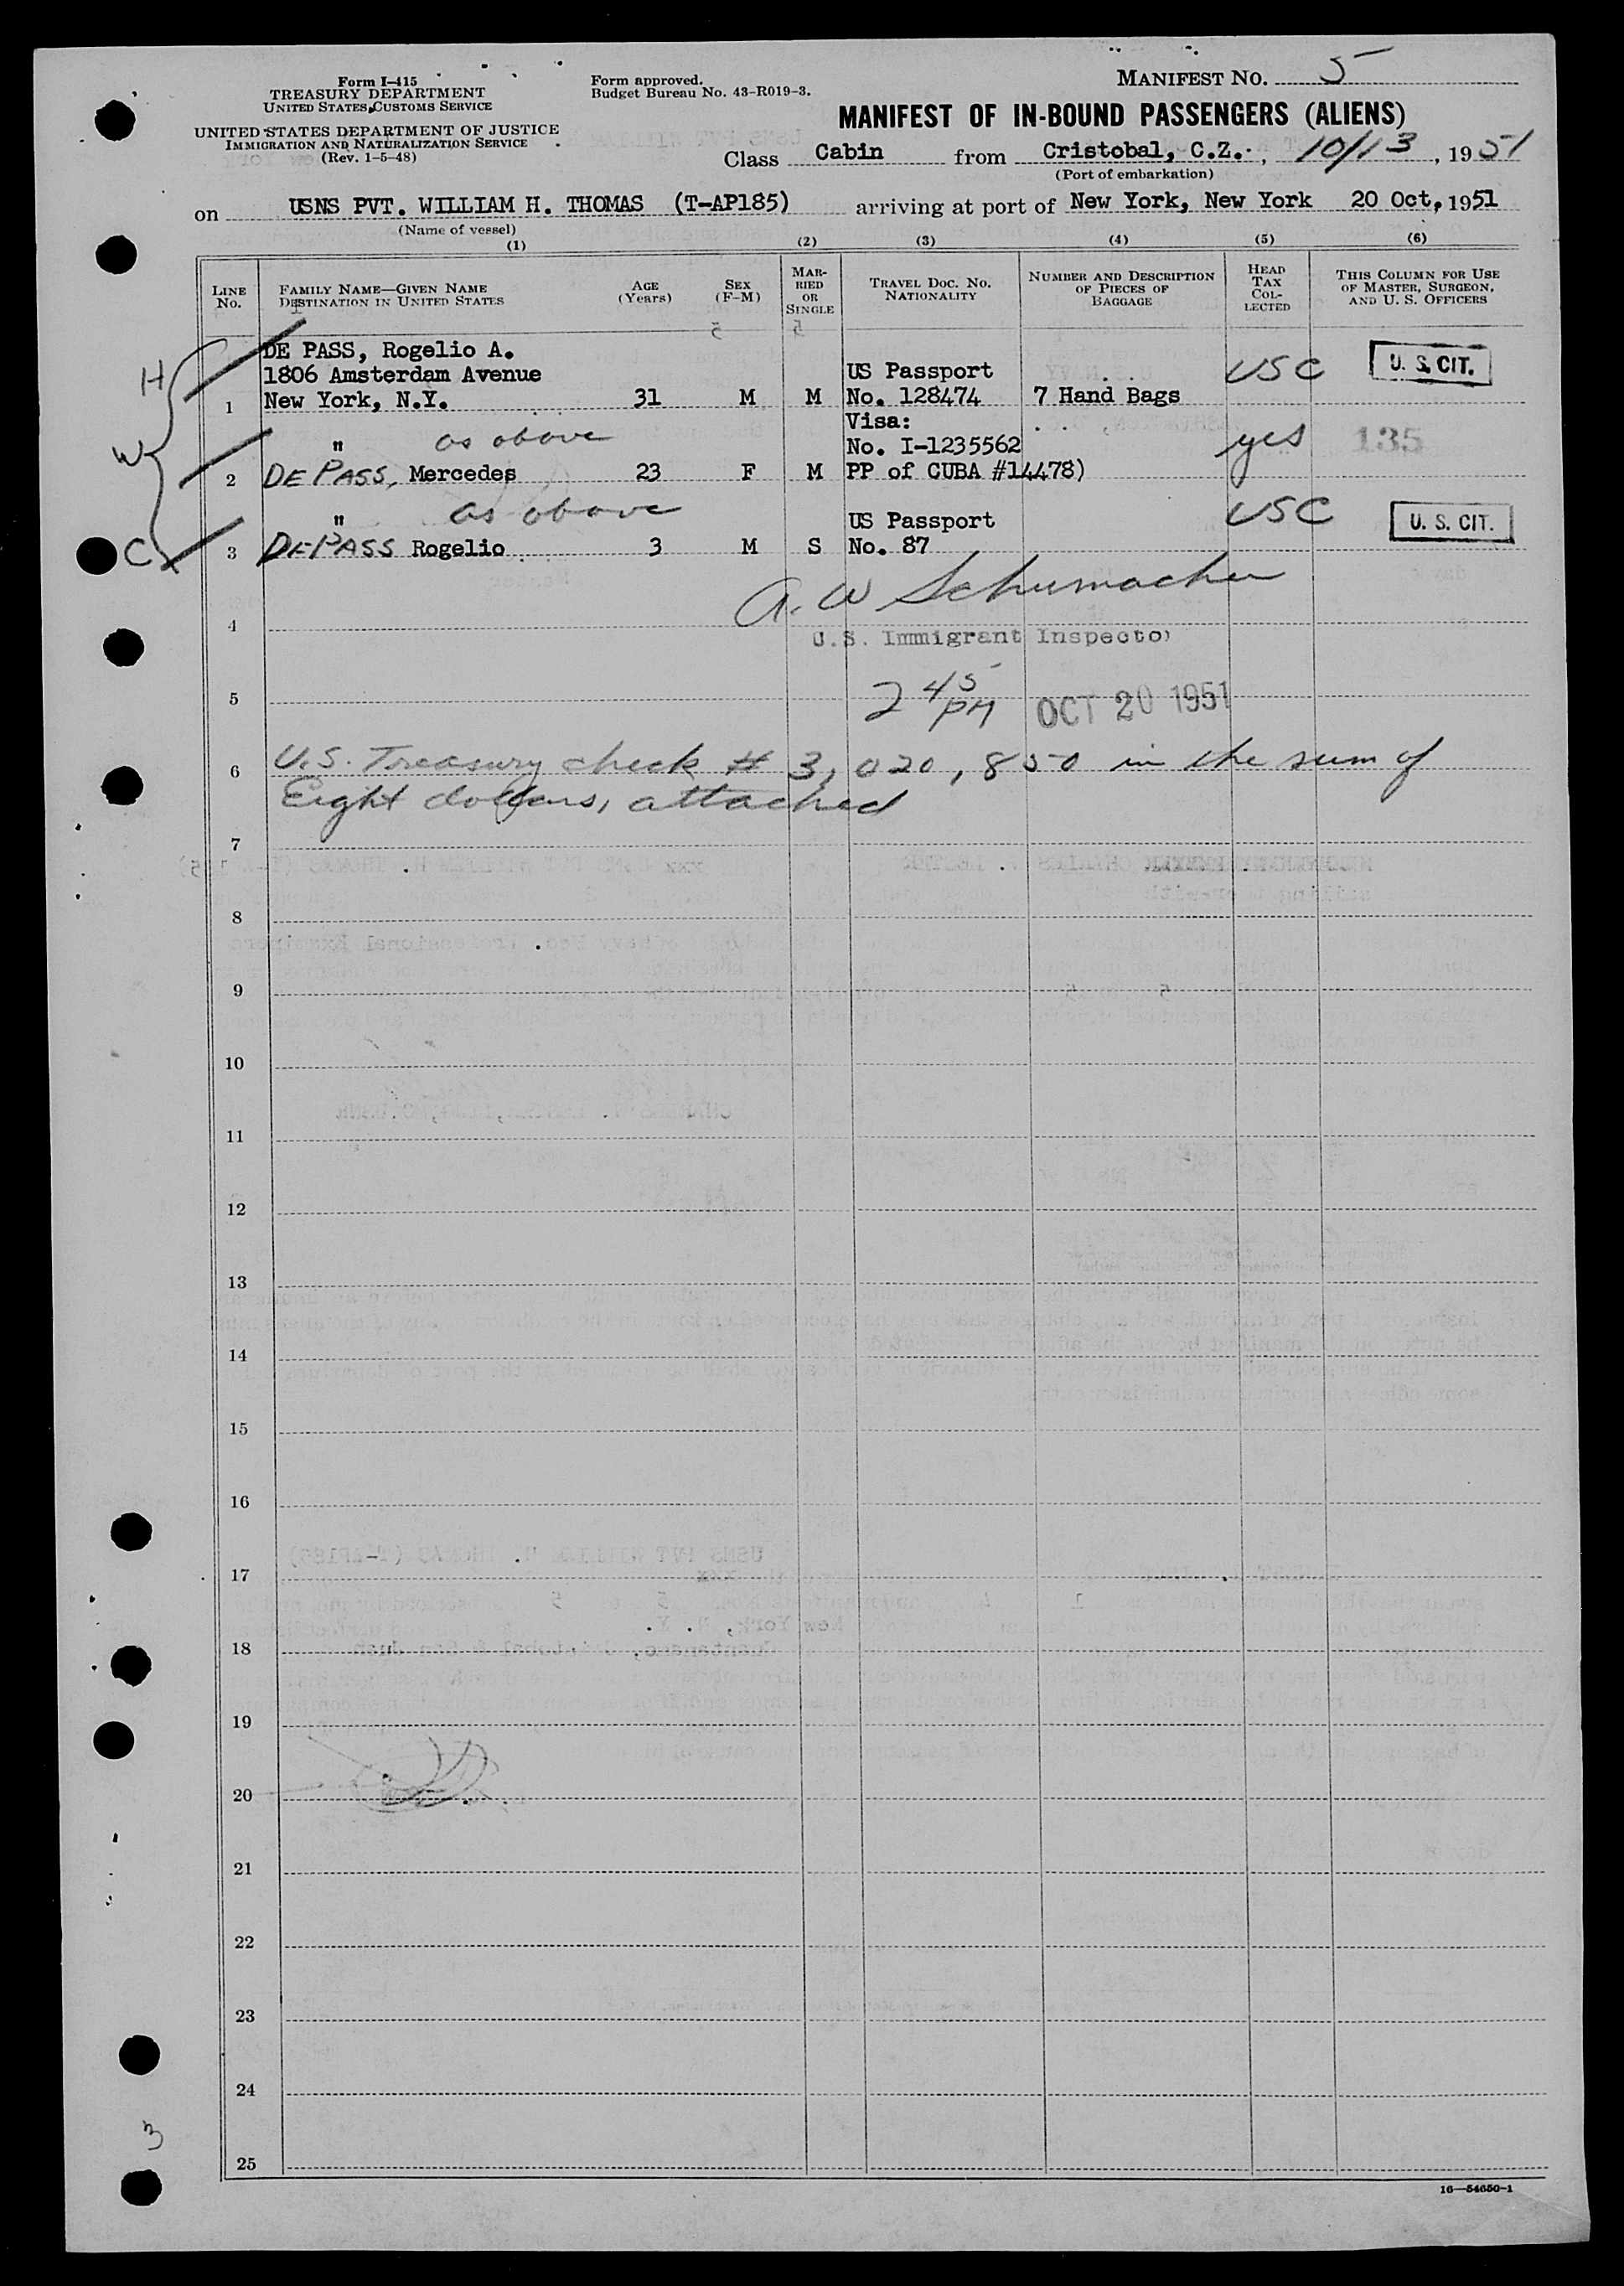 Form I-415
TREASURY DEPARTMENT
UNITED STATES CUSTOMS SERVICE
UNITED STATES DEPARTMENT OF JUSTICE
IMMIGRATION AND NATURALIZATION SERVICE
(Rev. 1-5-48)
Form approved.
Budget Bureau No. 43-R019-3.
MANIFEST NO. 5
MANIFEST OF IN-BOUND PASSENGERS (ALIENS)
Class Cabin from Cristobal, C.Z., 10/13, 1951
(Port of embarkation)
on USNS PVT. WILLIAM H. THOMAS (T-AP185) arriving at port of New York, New York 20 Oct, 1951
(Name of vessel)
(1) (2) (3) (4) (5) (6)
LINE No.
FAMILY NAME—GIVEN NAME
DESTINATION IN UNITED STATES
AGE (Years)
SEX (F-M)
MARRIED OR SINGLE
TRAVEL DOC. NO. NATIONALITY
NUMBER AND DESCRIPTION OF PIECES OF BAGGAGE
HEAD TAX COLLECTED
THIS COLUMN FOR USE OF MASTER, SURGEON, AND U. S. OFFICERS
H
DE PASS, Rogelio A.
1806 Amsterdam Avenue US Passport USC U. S. CIT.
1 New York, N.Y. 31 M M No. 128474 7 Hand Bags
Visa:
W " as above No. I-1235562 yes 135
2 DE PASS, Mercedes 23 F M PP of CUBA #14478)
" as above US Passport USC U. S. CIT.
C 3 DEPASS Rogelio 3 M S No. 87
A. W Schumacher
4
U.S. Immigrant Inspector
5 2 45 PM OCT 20 1951
6 U.S. Treasury check # 3,020,850 in the sum of
Eight dollars, attached
7
8
9
10
11
12
13
14
15
16
17
18
19
20
21
22
23
24
3
25
16—54650-1